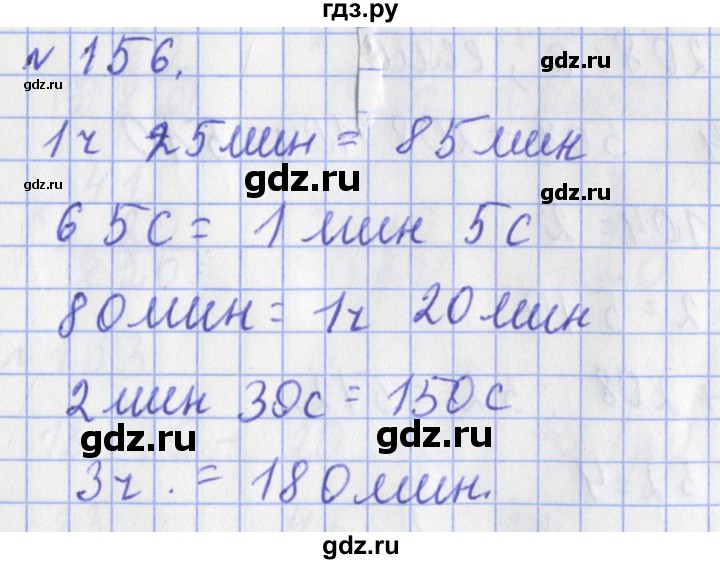 гдз.ру
№ 156.
gdz.ru
gdz.ru
1ч 25мин = 85мин
gdz.ru
gdz.ru
gdz.ru
65с = 1мин 5с
80мин = 1ч 20мин
2мин 30с = 150с
gdz.ru
gdz.ru
3ч. = 180мин.
gdz.ru
gdz.ru
gdz.ru